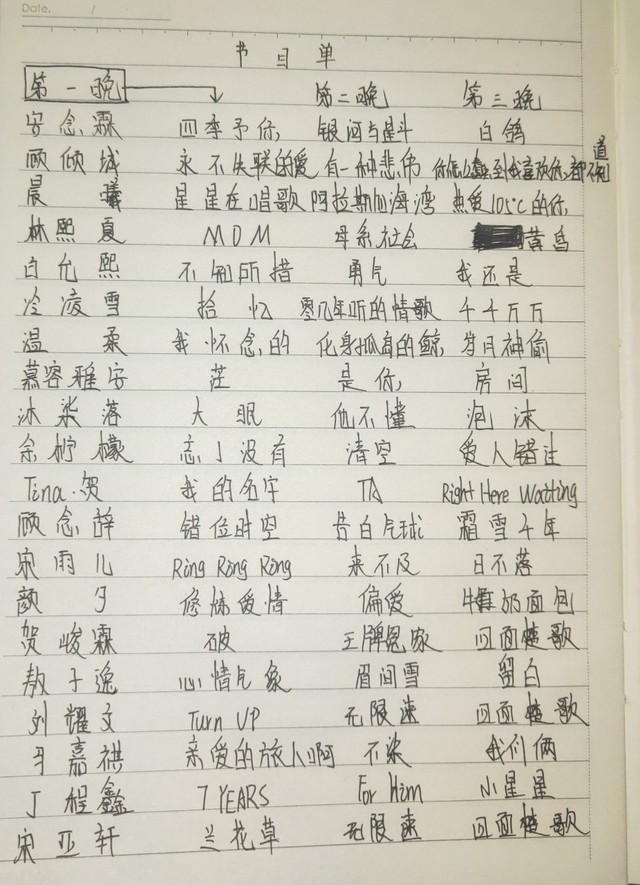 Date. /
节目单
第一晚 第二晚 第三晚
安念霖 四季予你 银河与星斗 白鸽
顾倾城 永不失联的爱 有一种悲伤 你怎么蠢到我喜欢你,都不知道
晨曦 星星在唱歌 阿拉斯加海湾 热爱105°C的你
林熙夏 MOM 母系社会 黄昏
白允熙 不知所措 勇气 我还是
冷凌雪 拾忆 零几年听的情歌 千千万万
温柔 我怀念的 化身孤岛的鲸 岁月神偷
慕容雅安 茫 是你 房间
沐柒落 大眠 他不懂 泡沫
余柠檬 忘了没有 清空 爱人错过
Tina.贺 我的名字 TA Right Here Waiting
顾念辞 错位时空 告白气球 霜雪千年
宋雨儿 Ring Ring Ring 来不及 日不落
颜夕 修炼爱情 偏爱 牛奶面包
贺峻霖 破 王牌冤家 四面楚歌
敖子逸 心情气象 眉间雪 留白
刘耀文 Turn UP 无限速 四面楚歌
马嘉祺 亲爱的旅人啊 不染 我们俩
丁程鑫 7 YEARS For Him 小星星
宋亚轩 兰花草 无限速 四面楚歌